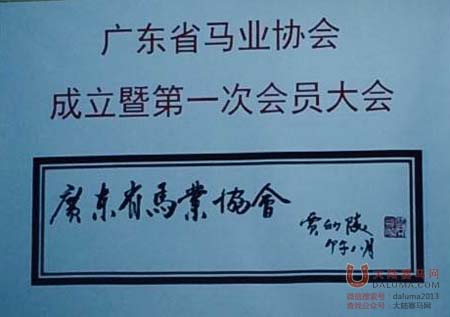 广东省马业协会
成立暨第一次会员大会
廣东省馬業協會
大陆赛马网
DALUMA.COM
微信搜索号：daluma2013
查找公众号：大陆赛马网